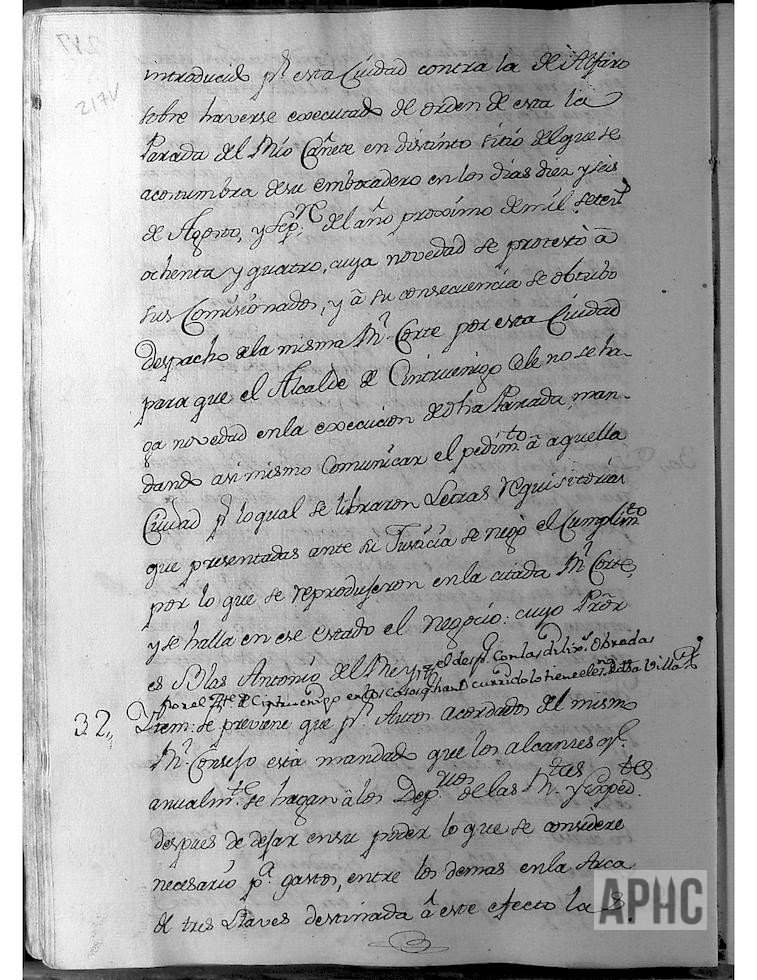 217
217V
introducido pr. esta Ciudad contra la de Alfaro
sobre haverse executado de orden de esta la
Parada del Mio Cañete en distinto sitio del que se
acostumbra de su embocadero en los dias diez y seis
de Agosto, y Sepre. del año proximo de mil setects.
ochenta y quatro, cuya novedad se protestò à
sus Comisionados, y à su consecuencia se obtubo
despacho de la misma Rl. Corte por esta Ciudad
para que el Alcalde de Cintruenigo cele no se ha-
ga novedad en la execucion de dha Parada, man-
dando asi mismo Comunicar el pedimto. à aquella
Ciudad pr. lo qual se libraron Letras requisitorias
que presentadas ante su Justicia se negò el Cumplimto.
por lo que se reprodujeron en la citada Rl. Corte,
y se halla en ese estado el negocio: cuyo Prõr
es Blas Antonio del Rey, y el desp.o con las dilixs. obradas
por el Alde. de Cintruenigo en los casos q. han ocurrido lo tiene el essno. de dha Villa
32,, Ytem: se previene que pr. Autos acordados del mismo
Rl. Consejo està mandado que los alcanzes qe.
anualmte. se hagan à los Depuos. de las Rtas. y Expedtes.
despues de dejar en su poder lo que se considere
necesario pa. gastos, entre los demas en la Arca
de tres Llaves destinada à este efecto la
APHC